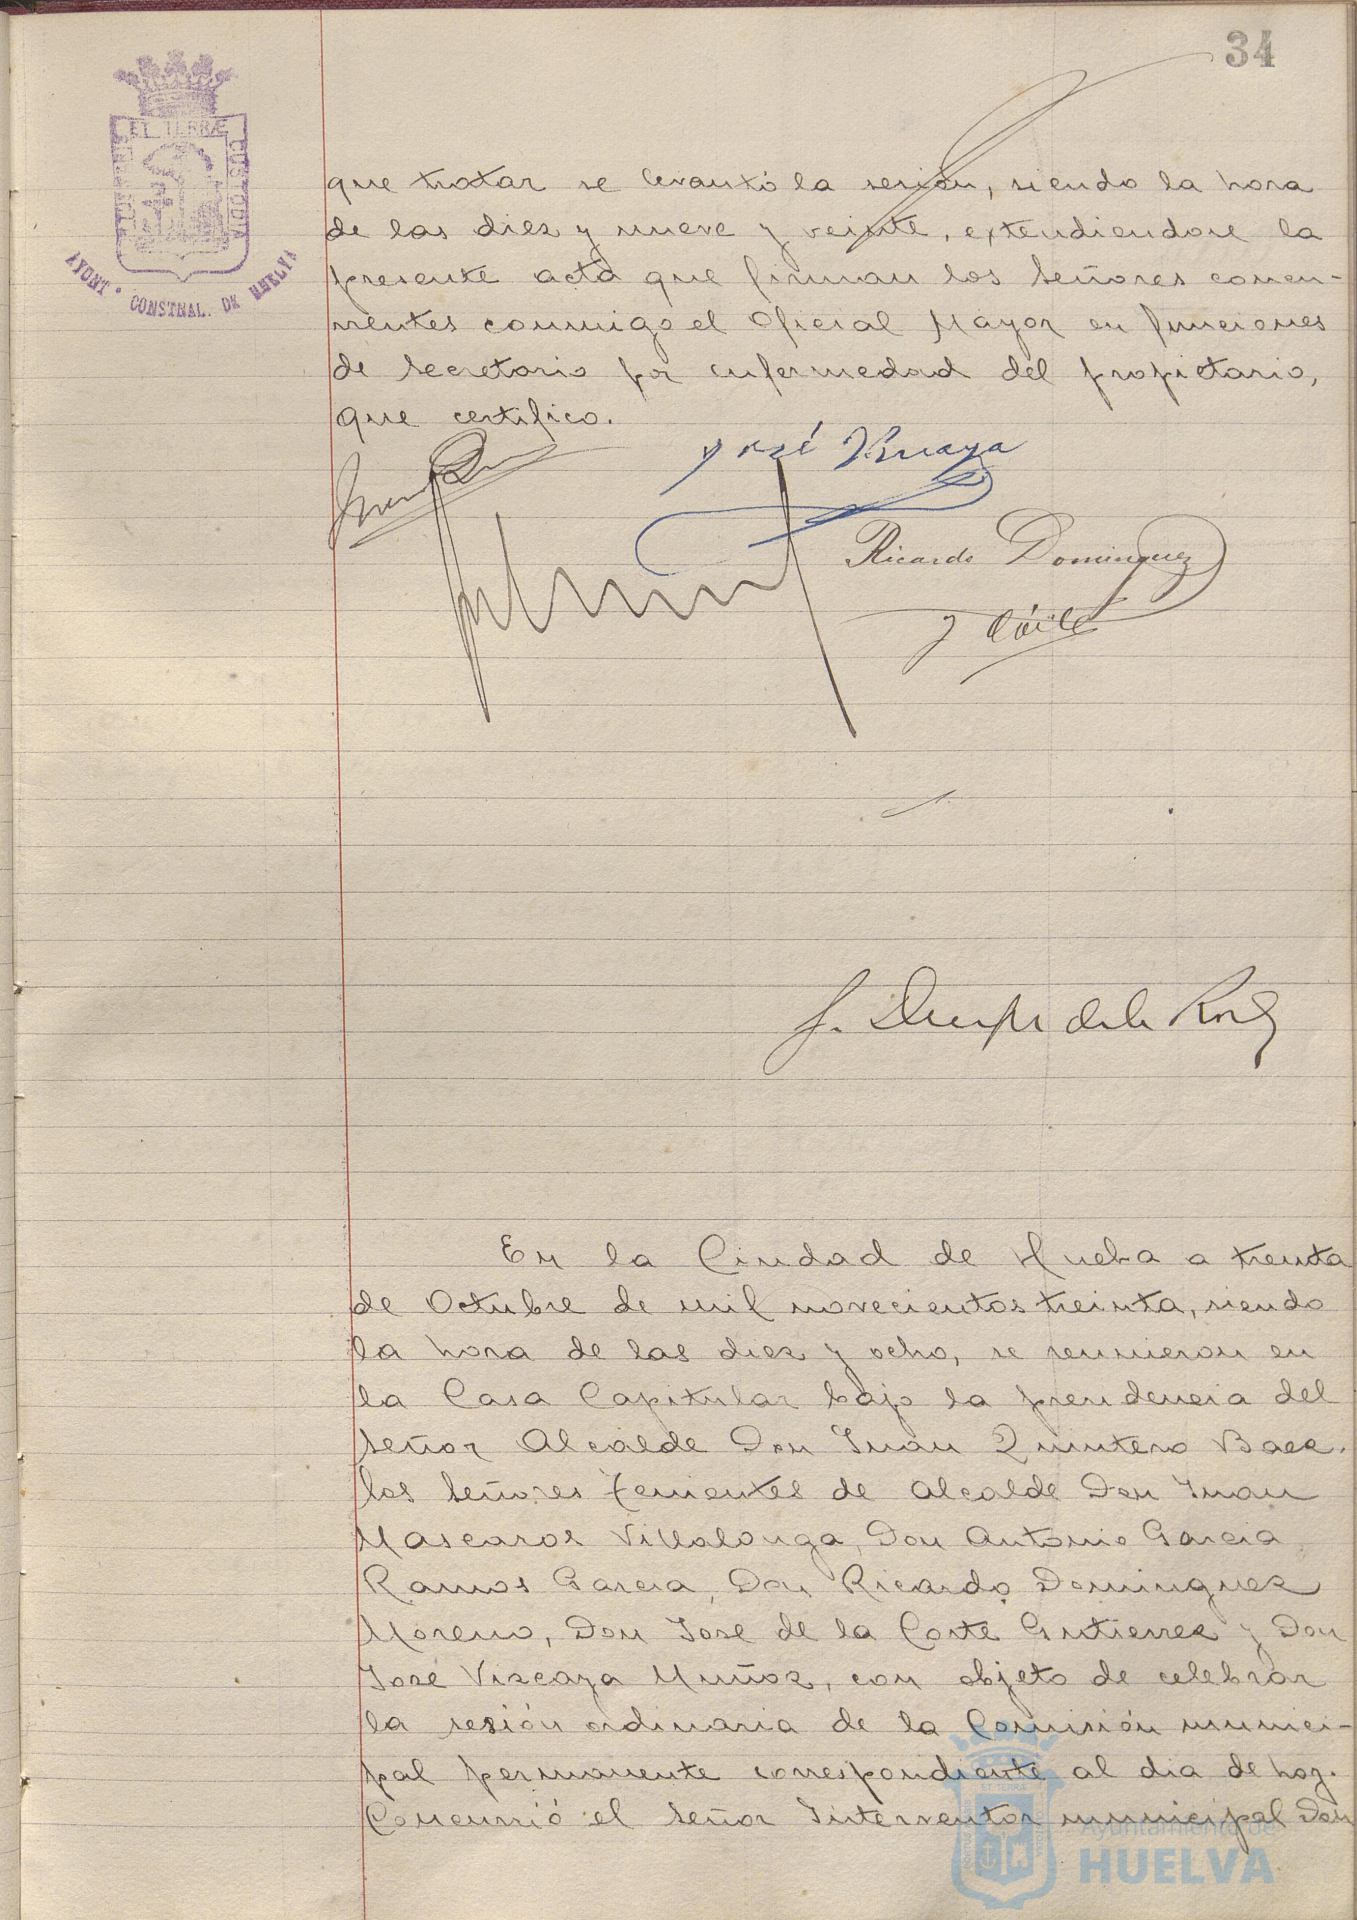 34
ET TERRÆ
CUSTODIA
AYONT • CONSTNAL. DE HUELVA
que tratar se levantó la sesión, siendo la hora
de las diez y nueve y veinte, extendiendose la
presente acta que firman los Señores concu-
rrentes conmigo el Oficial Mayor en funciones
de Secretario por enfermedad del propietario,
que certifico.
José Viscaya
Ricardo Dominguez
En la Ciudad de Huelva a treinta
de Octubre de mil novecientos treinta, siendo
la hora de las diez y ocho, se reunieron en
la Casa Capitular bajo la presidencia del
Señor Alcalde Don Juan Quintero Baez.
los Señores Tenientes de Alcalde Don Juan
Mascaros Villalonga, Don Antonio Garcia
Ramos Garcia, Don Ricardo Dominguez
Moreno, Don José de la Corte Gutierrez y Don
José Viscaya Muñoz, con objeto de celebrar
la sesión ordinaria de la Comisión munici-
pal permanente correspondiente al dia de hoy.
Concurrió el Señor Interventor municipal Don
Ayuntamiento de
HUELVA